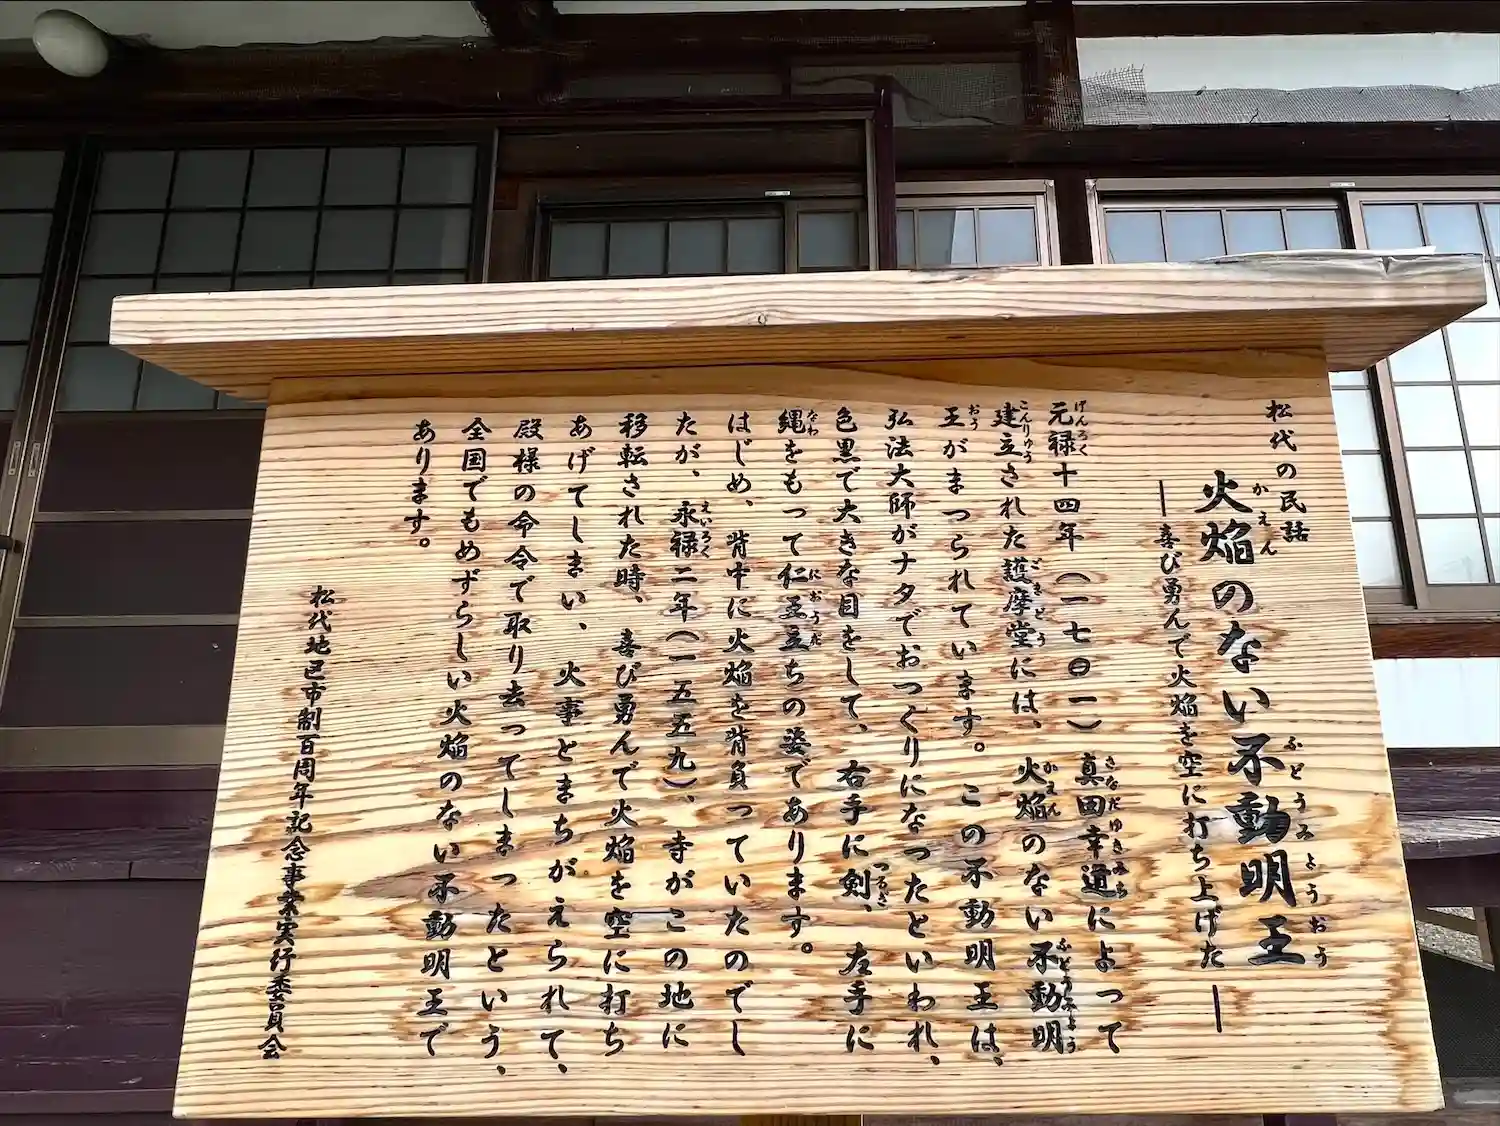 松代の民話
火焔のない不動明王
かえん
ふどうみょうおう
―喜び勇んで火焔を空に打ち上げた―
元禄十四年（一七〇一）真田幸道によって
げんろく
さなだゆきみち
建立された護摩堂には、火焔のない不動明
こんりゅう
ごまどう
かえん
ふどうみょう
王がまつられています。この不動明王は、
おう
弘法大師がナタでおつくりになったといわれ、
色黒で大きな目をして、右手に剣、左手に
つるぎ
縄をもって仁王立ちの姿であります。
なわ
におうだ
はじめ、背中に火焔を背負っていたのでし
たが、永禄二年（一五五九）、寺がこの地に
えいろく
移転された時、喜び勇んで火焔を空に打ち
あげてしまい、火事とまちがえられて、
殿様の命令で取り去ってしまったという、
全国でもめずらしい火焔のない不動明王で
あります。
松代地区市制百周年記念事業実行委員会